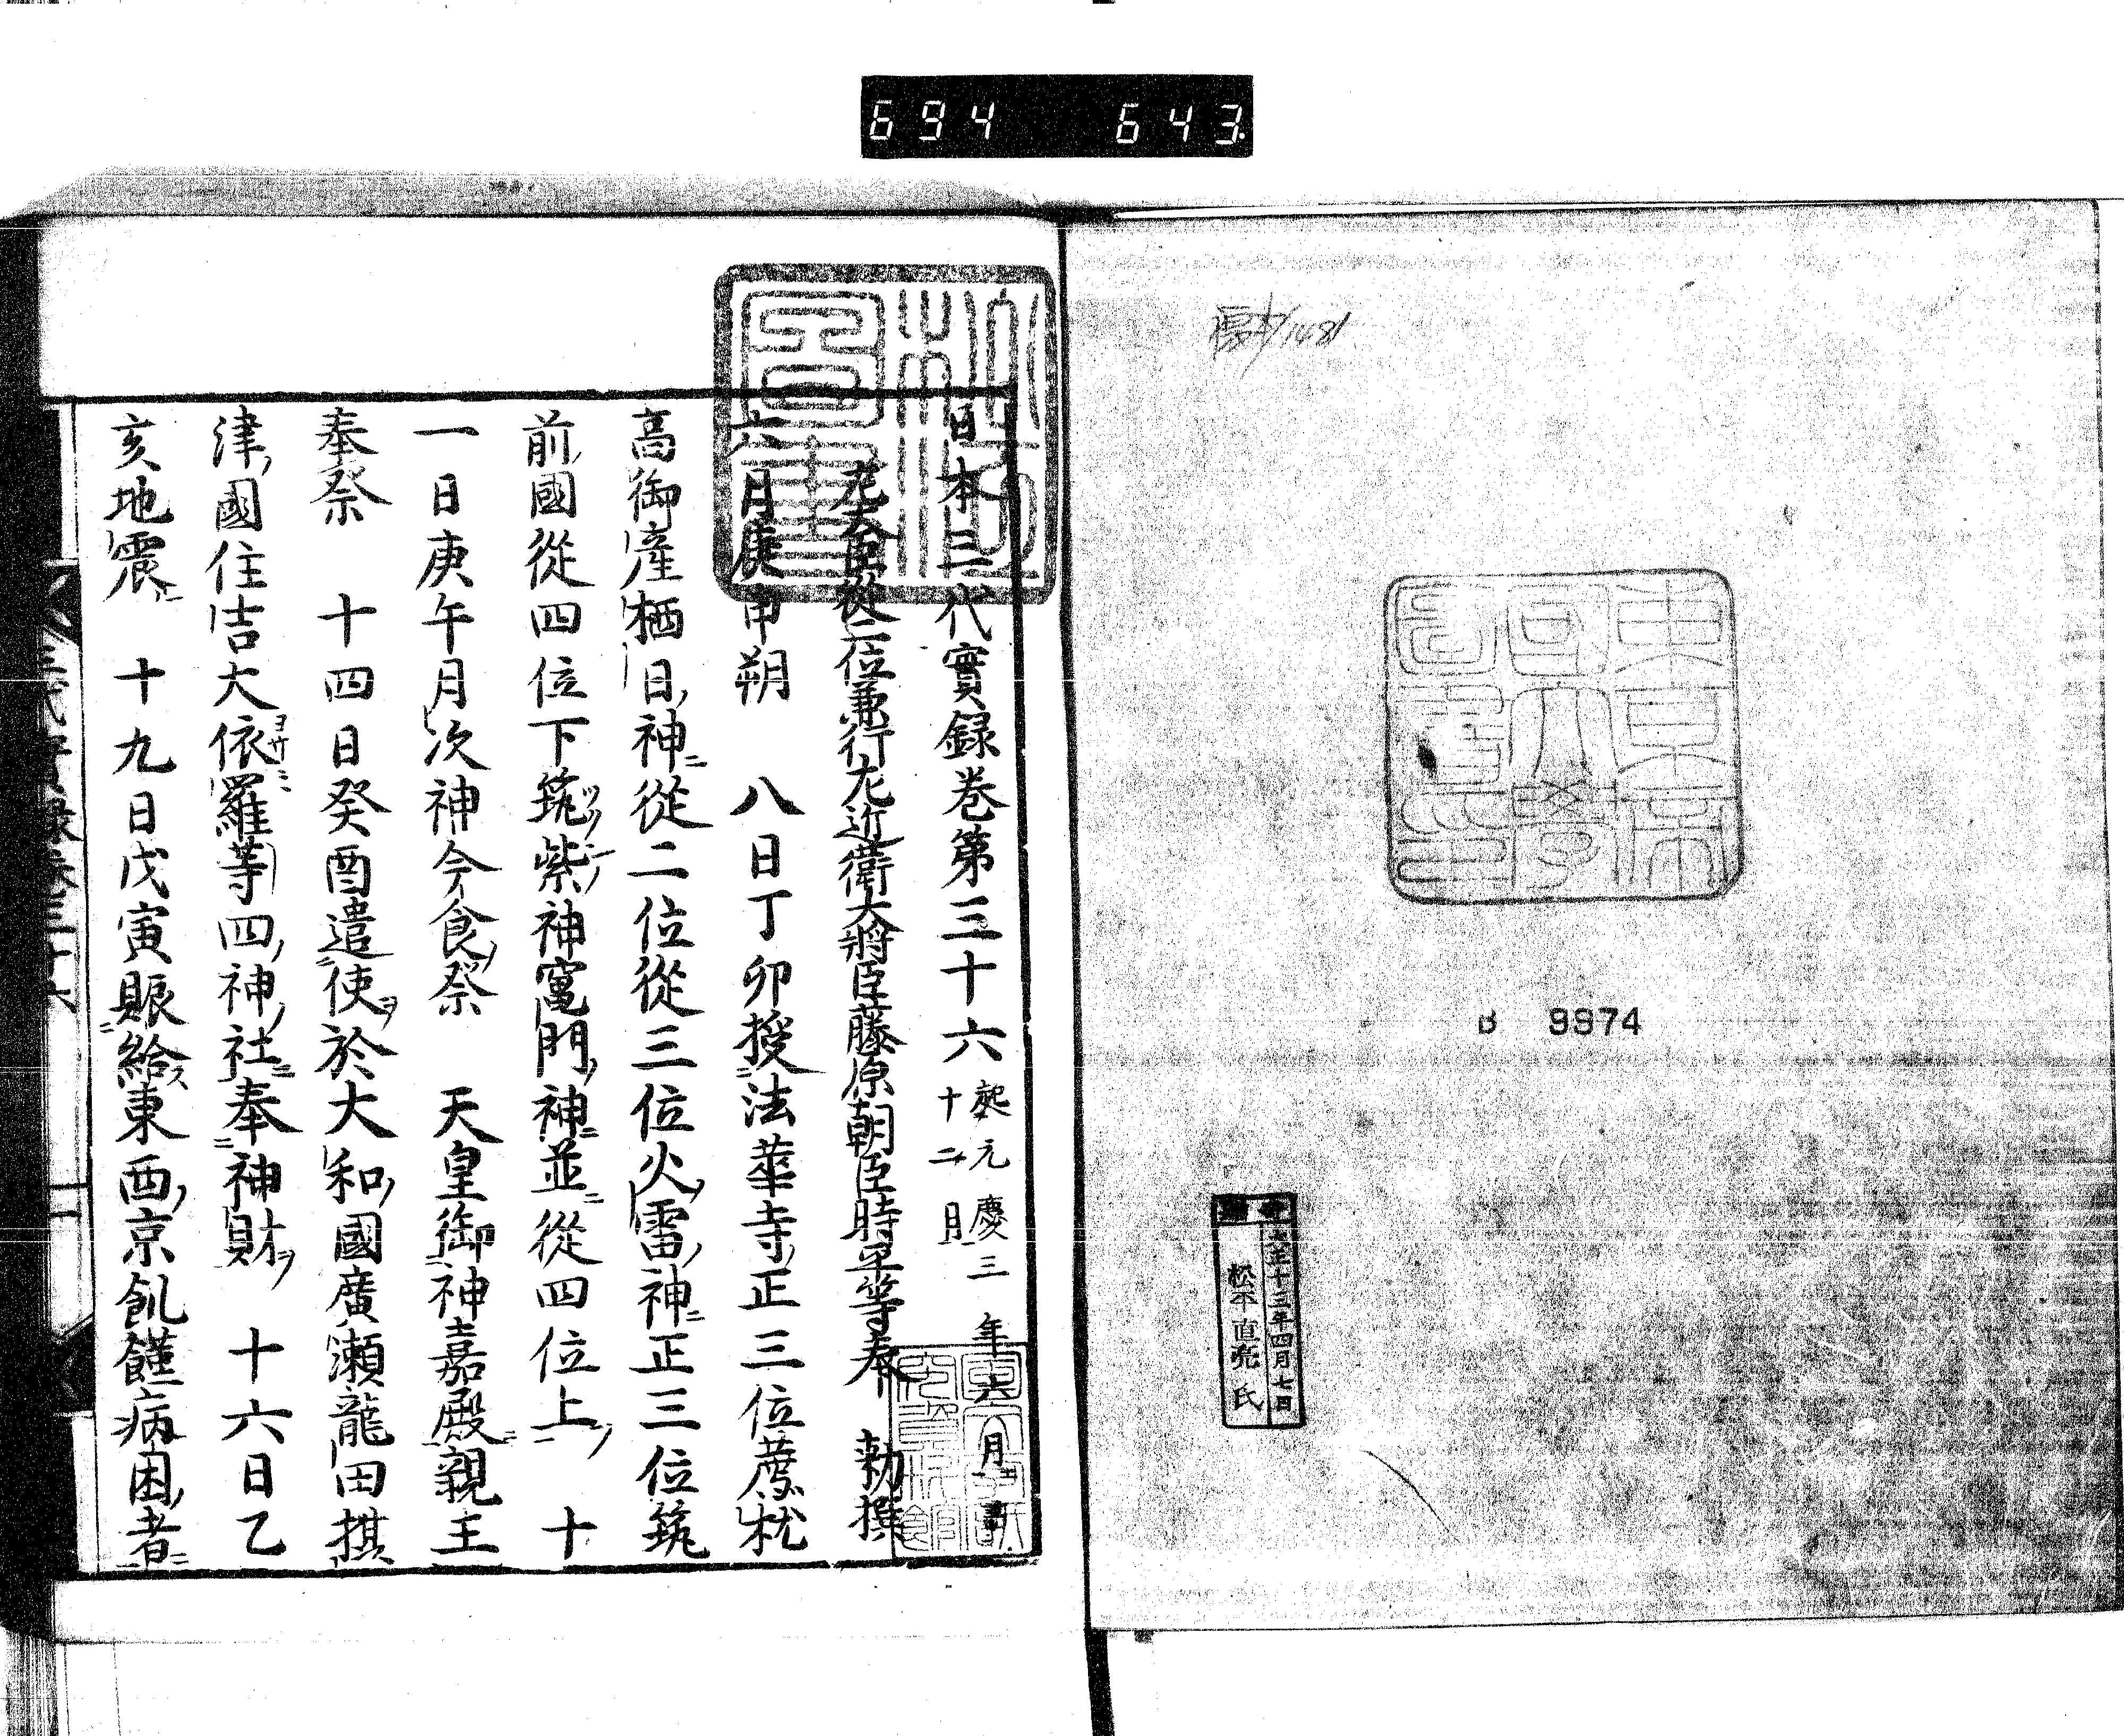 694 643
1481
東京帝國大學圖書印
B 9974
大正十三年四月七日
松平直亮氏
日本三代實録巻第三十六起元慶三年六月盡十二月
左大臣從二位兼行左近衛大將臣藤原朝臣時平等奉 勅撰
六月庚申朔 八日丁卯授法華寺正三位薦枕
高御産栖日神從二位從三位火雷神正三位筑
前國從四位下筑紫神竃門神並從四位上 十
一日庚午月次神今食祭 天皇御神嘉殿親王
奉祭 十四日癸酉遣使於大和國廣瀬龍田摂
津國住吉大依羅等四神社奉神財 十六日乙
亥地震 十九日戊寅賑給東西京飢饉病困者
三代實録巻三十六 一